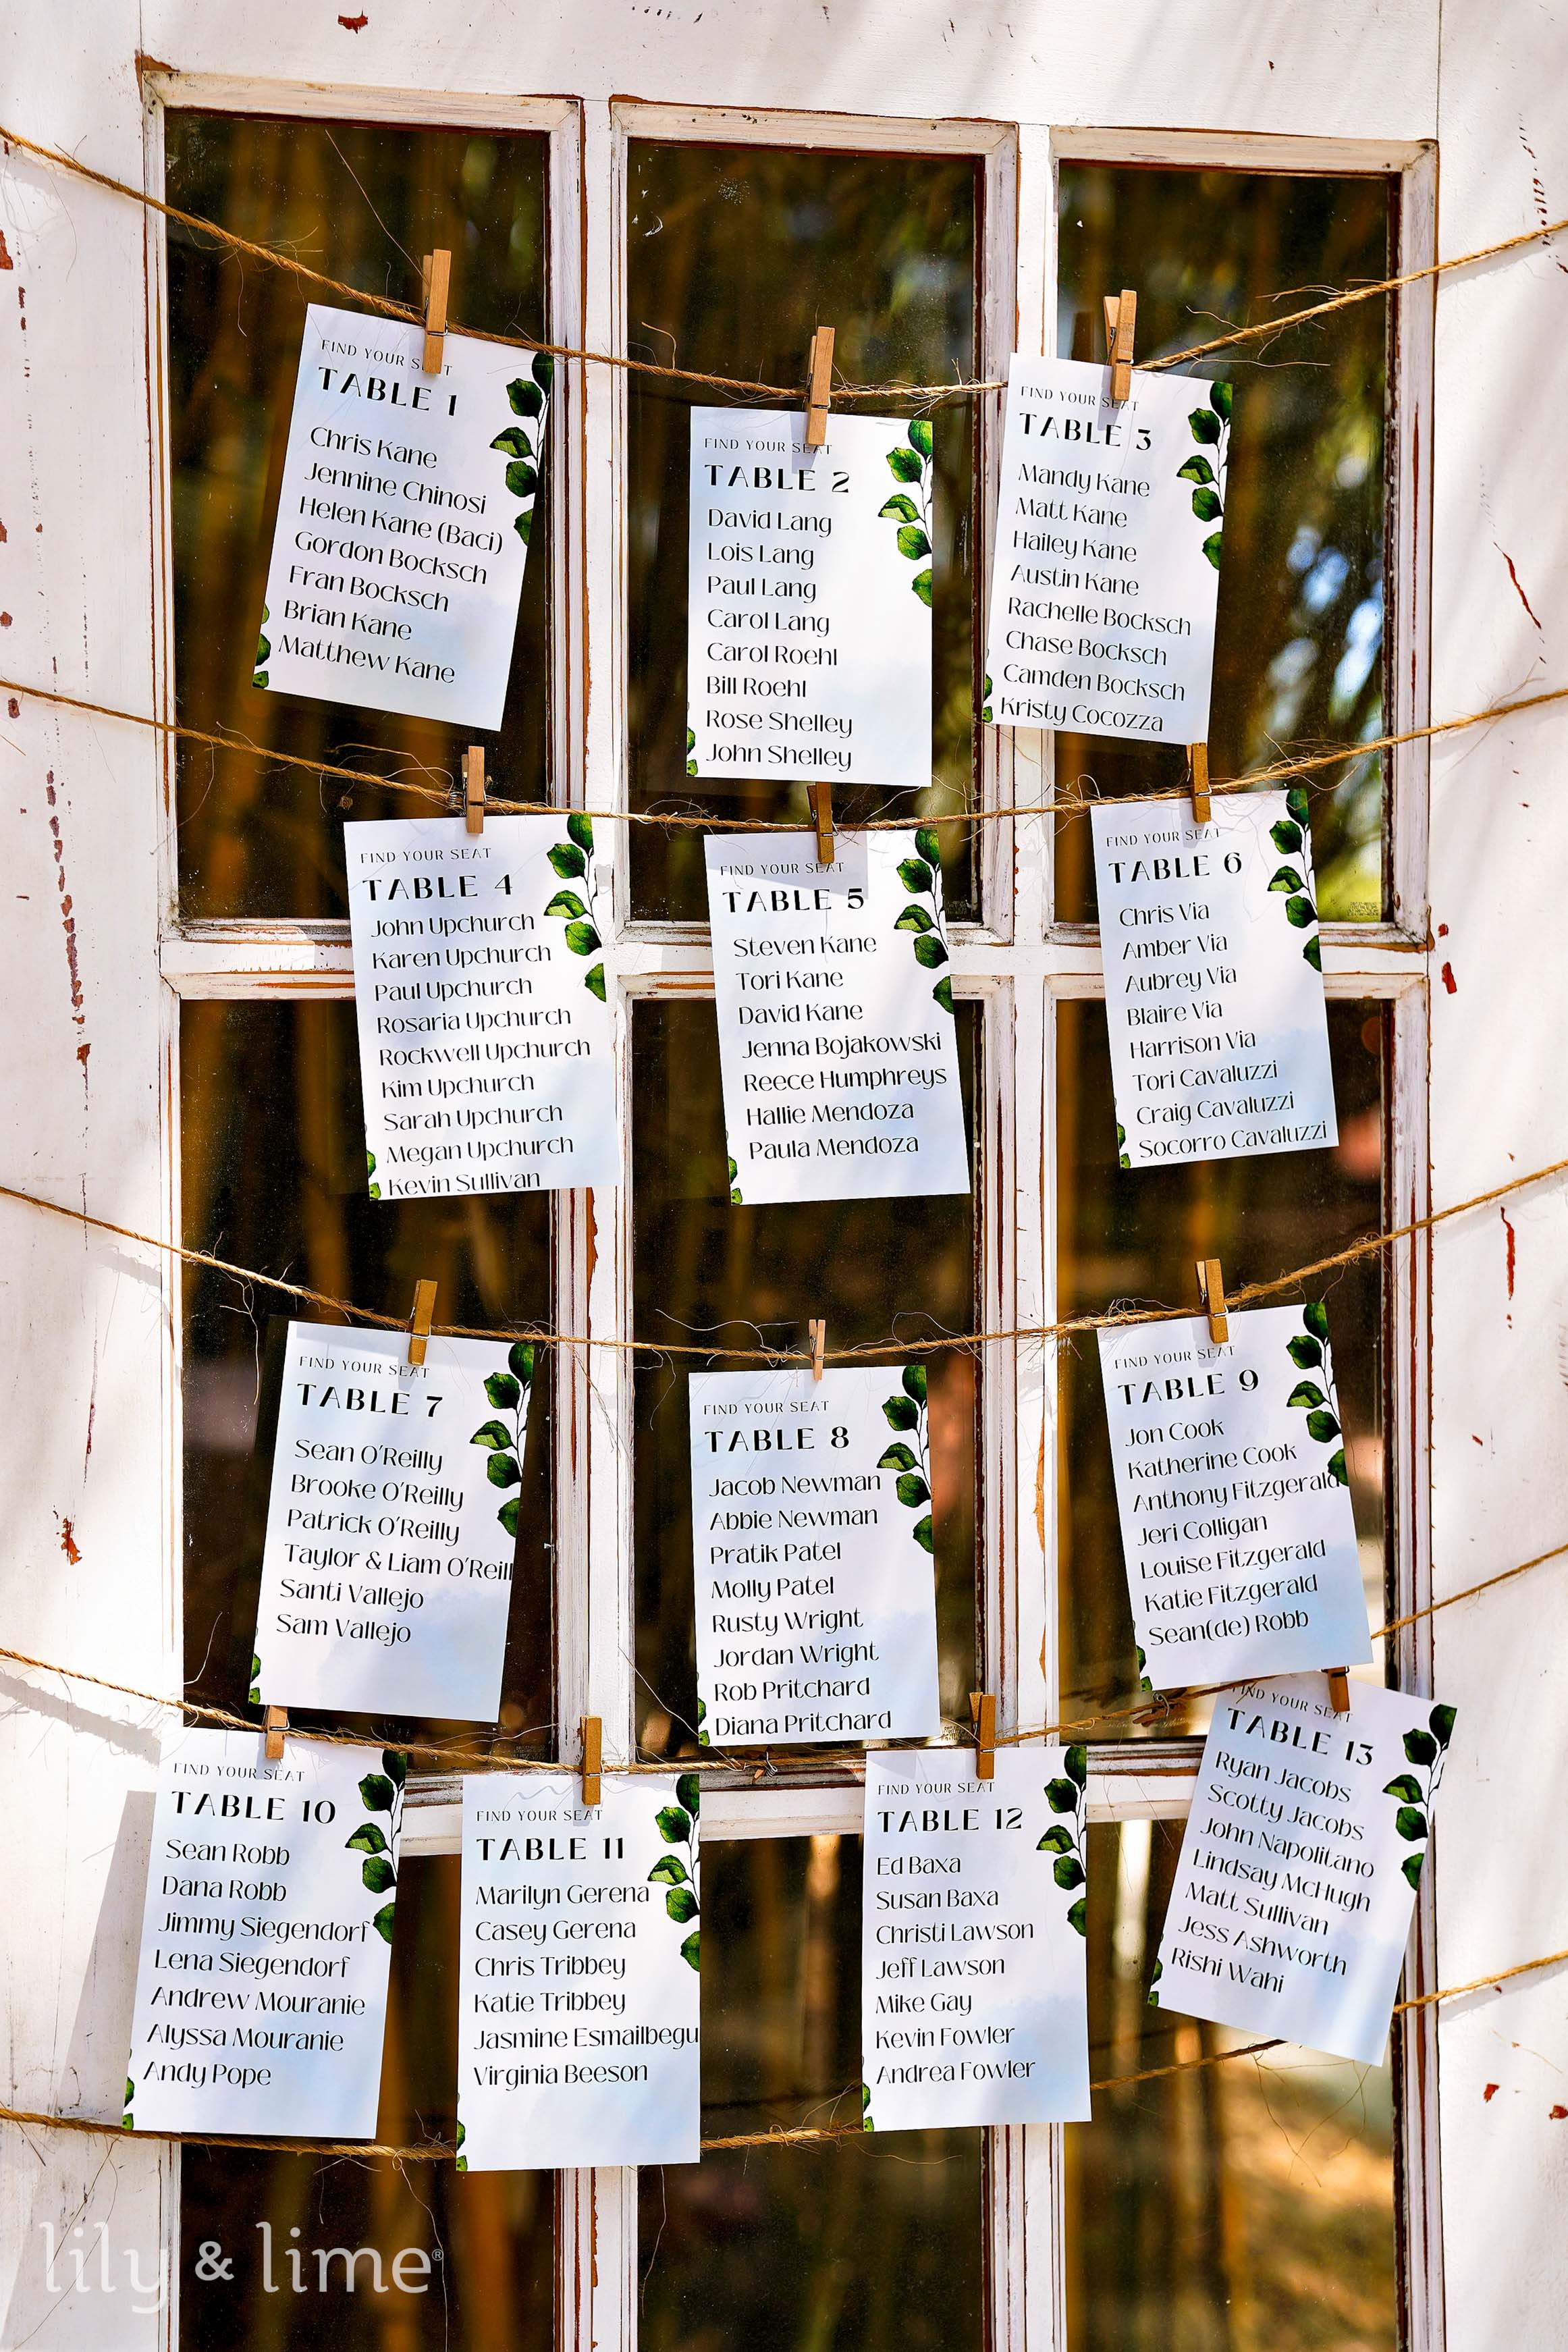 FIND YOUR SEAT
TABLE 1
Chris Kane
Jennine Chinosi
Helen Kane (Baci)
Gordon Bocksch
Fran Bocksch
Brian Kane
Matthew Kane
FIND YOUR SEAT
TABLE 2
David Lang
Lois Lang
Paul Lang
Carol Lang
Carol Roehl
Bill Roehl
Rose Shelley
John Shelley
FIND YOUR SEAT
TABLE 3
Mandy Kane
Matt Kane
Hailey Kane
Austin Kane
Rachelle Bocksch
Chase Bocksch
Camden Bocksch
Kristy Cocozza
FIND YOUR SEAT
TABLE 4
John Upchurch
Karen Upchurch
Paul Upchurch
Rosaria Upchurch
Rockwell Upchurch
Kim Upchurch
Sarah Upchurch
Megan Upchurch
Kevin Sullivan
FIND YOUR SEAT
TABLE 5
Steven Kane
Tori Kane
David Kane
Jenna Bojakowski
Reece Humphreys
Hallie Mendoza
Paula Mendoza
FIND YOUR SEAT
TABLE 6
Chris Via
Amber Via
Aubrey Via
Blaire Via
Harrison Via
Tori Cavaluzzi
Craig Cavaluzzi
Socorro Cavaluzzi
FIND YOUR SEAT
TABLE 7
Sean O'Reilly
Brooke O'Reilly
Patrick O'Reilly
Taylor & Liam O'Reill
Santi Vallejo
Sam Vallejo
FIND YOUR SEAT
TABLE 8
Jacob Newman
Abbie Newman
Pratik Patel
Molly Patel
Rusty Wright
Jordan Wright
Rob Pritchard
Diana Pritchard
FIND YOUR SEAT
TABLE 9
Jon Cook
Katherine Cook
Anthony Fitzgerald
Jeri Colligan
Louise Fitzgerald
Katie Fitzgerald
Sean(de) Robb
FIND YOUR SEAT
TABLE 10
Sean Robb
Dana Robb
Jimmy Siegendorf
Lena Siegendorf
Andrew Mouranie
Alyssa Mouranie
Andy Pope
FIND YOUR SEAT
TABLE 11
Marilyn Gerena
Casey Gerena
Chris Tribbey
Katie Tribbey
Jasmine Esmailbegu
Virginia Beeson
FIND YOUR SEAT
TABLE 12
Ed Baxa
Susan Baxa
Christi Lawson
Jeff Lawson
Mike Gay
Kevin Fowler
Andrea Fowler
FIND YOUR SEAT
TABLE 13
Ryan Jacobs
Scotty Jacobs
John Napolitano
Lindsay McHugh
Matt Sullivan
Jess Ashworth
Rishi Wahi
lily & lime®